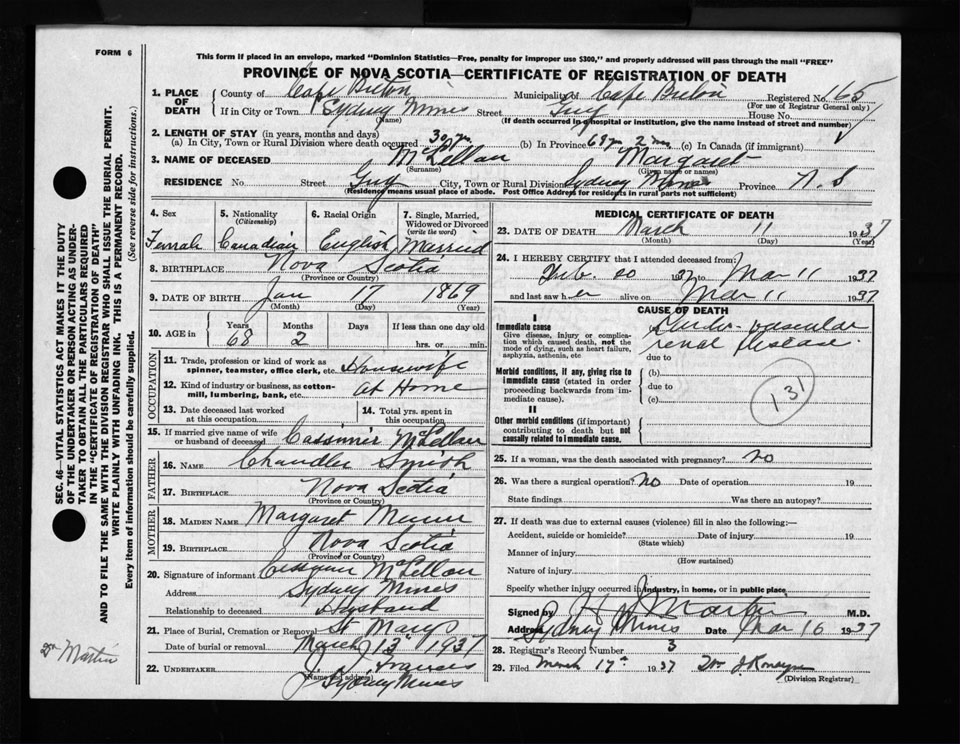 FORM 6
This form if placed in an envelope, marked "Dominion Statistics—Free, penalty for improper use $300," and properly addressed will pass through the mail "FREE"
PROVINCE OF NOVA SCOTIA—CERTIFICATE OF REGISTRATION OF DEATH
1. PLACE OF DEATH County of Cape Breton Municipality of Cape Breton Registered No. 165
(For use of Registrar General only)
If in City or Town Sydney Mines Street House No.
(Name) (If death occurred in a hospital or institution, give the name instead of street and number)
2. LENGTH OF STAY (in years, months and days)
(a) In City, Town or Rural Division where death occurred 30 yrs (b) In Province 68 yrs 2 mos (c) In Canada (if immigrant)
3. NAME OF DECEASED McLellan Margaret
(Surname) (Given name or names)
RESIDENCE No. Street City, Town or Rural Division Sydney Mines Province N. S
(Residency means usual place of abode. Post Office Address for residents in rural parts not sufficient)
4. Sex Female
5. Nationality (Citizenship) Canadian
6. Racial Origin English
7. Single, Married, Widowed or Divorced (write the word) Married
8. BIRTHPLACE Nova Scotia
(Province or Country)
9. DATE OF BIRTH Jan 17 1869
(Month) (Day) (Year)
10. AGE in Years 68 Months 2 Days If less than one day old hrs. or min.
OCCUPATION
11. Trade, profession or kind of work as spinner, teamster, office clerk, etc. Housewife
12. Kind of industry or business, as cotton-mill, lumbering, bank, etc. at Home
13. Date deceased last worked at this occupation
14. Total yrs. spent in this occupation
15. If married give name of wife or husband of deceased Cassimir McLellan
FATHER
16. NAME Chandler Smith
17. BIRTHPLACE Nova Scotia
(Province or Country)
MOTHER
18. MAIDEN NAME Margaret
19. BIRTHPLACE Nova Scotia
(Province or Country)
20. Signature of informant McLellan
Address Sydney Mines
Relationship to deceased Husband
21. Place of Burial, Cremation or Removal St Marys
Date of burial or removal March 13 1937
22. UNDERTAKER J Francis
(Name and address) Sydney Mines
MEDICAL CERTIFICATE OF DEATH
23. DATE OF DEATH March 11 1937
(Month) (Day) (Year)
24. I HEREBY CERTIFY that I attended deceased from:
Feb. 20 1937 to Mar 11 1937
and last saw her alive on Mar 11 1937
CAUSE OF DEATH
I
Immediate cause
Give disease, injury or complication which caused death, not the mode of dying, such as heart failure, asphyxia, asthenia, etc
Cardio-vascular
renal disease.
due to
Morbid conditions, if any, giving rise to immediate cause (stated in order proceeding backwards from immediate cause).
(b)
due to
(c)
131
II
Other morbid conditions (if important) contributing to death but not causally related to immediate cause.
25. If a woman, was the death associated with pregnancy? no
26. Was there a surgical operation? no Date of operation 19
State findings Was there an autopsy?
27. If death was due to external causes (violence) fill in also the following:—
Accident, suicide or homicide? Date of injury 19
(State which)
Manner of injury
(How sustained)
Nature of injury
Specify whether injury occurred in industry, in home, or in public place
Signed by Martin M.D.
Address Sydney Mines Date Mar 16 1937
28. Registrar's Record Number 3
29. Filed March 17th 1937
(Division Registrar)
SEC. 46—VITAL STATISTICS ACT MAKES IT THE DUTY
OF THE UNDERTAKER OR PERSON ACTING AS UNDER-
TAKER TO OBTAIN ALL THE PARTICULARS REQUIRED
IN THE "CERTIFICATE OF REGISTRATION OF DEATH"
AND TO FILE THE SAME WITH THE DIVISION REGISTRAR WHO SHALL ISSUE THE BURIAL PERMIT.
WRITE PLAINLY WITH UNFADING INK. THIS IS A PERMANENT RECORD.
Every item of information should be carefully supplied.
(See reverse side for instructions.)
Dr Martin